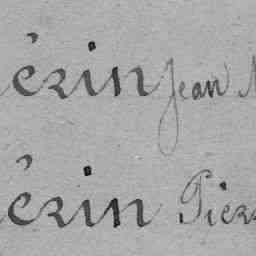 érin Jean
érin Pierr